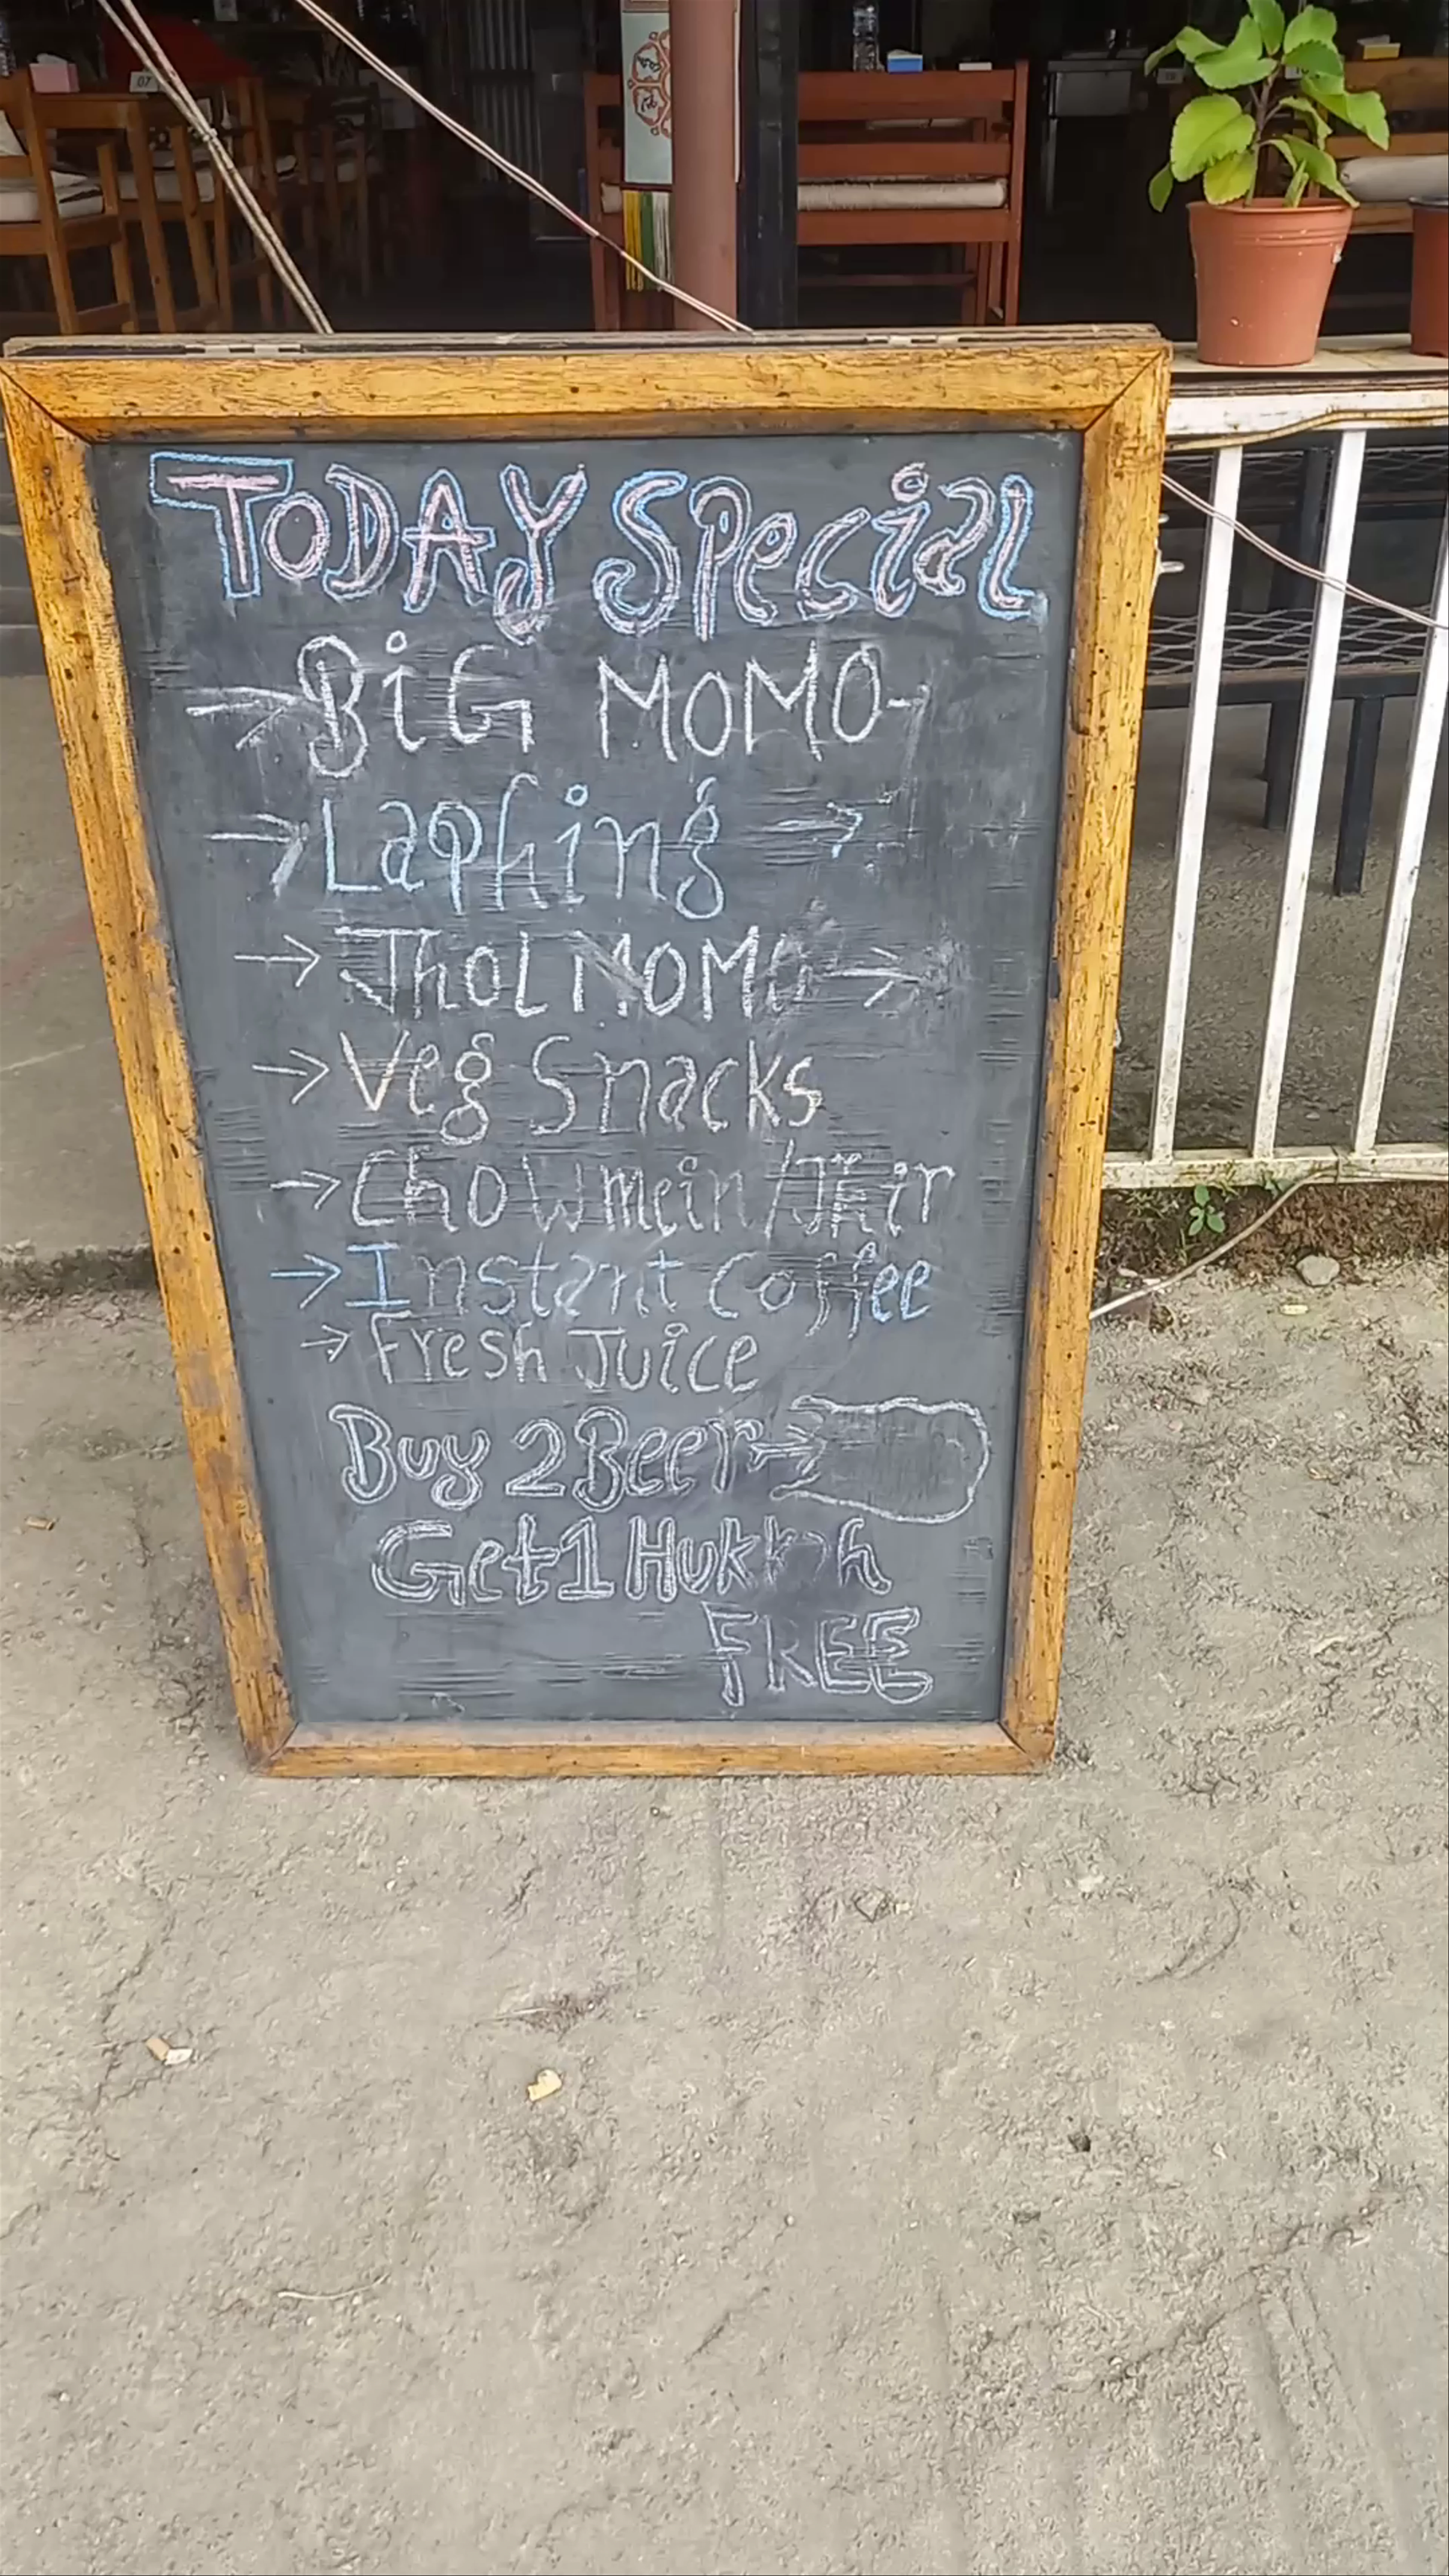 TODAY Special
→ BiG MOMO-
→ Laphing →
→ Jhol MOMO →
→ Veg Snacks
→ Chowmein/
→ Instant coffee
→ Fresh Juice
Buy 2 Beer →
Get 1 Hukkah
FREE
07